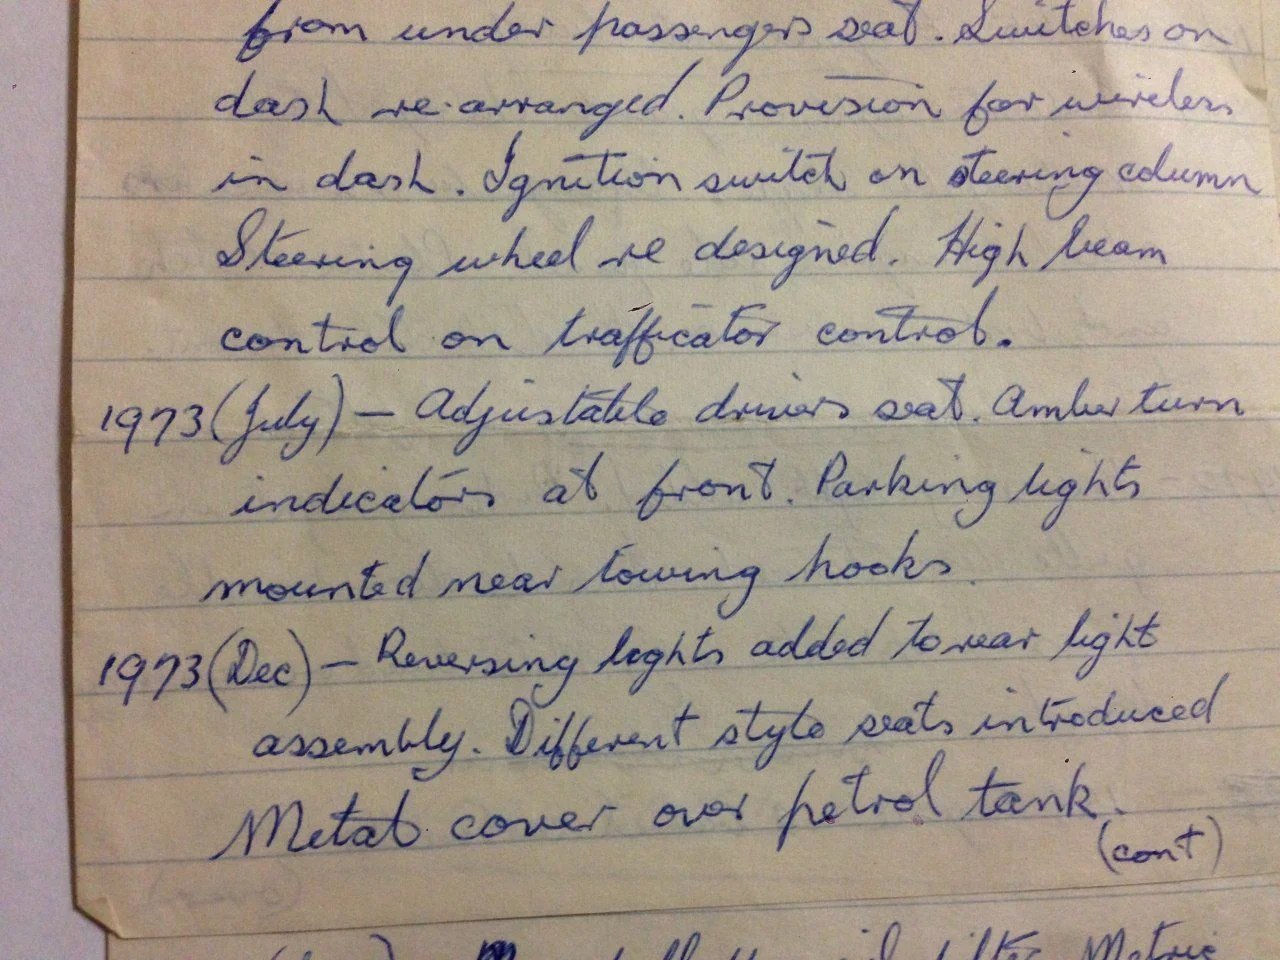 from under passengers seat. Switches on
dash re-arranged. Provision for wireless
in dash. Ignition switch on steering column
Steering wheel re designed. High beam
control on trafficator control.
1973 (July) — Adjustable drivers seat. Amber turn
indicators at front. Parking lights
mounted near towing hooks.
1973 (Dec) — Reversing lights added to rear light
assembly. Different style seats introduced
Metal cover over petrol tank.
(cont)
Metric